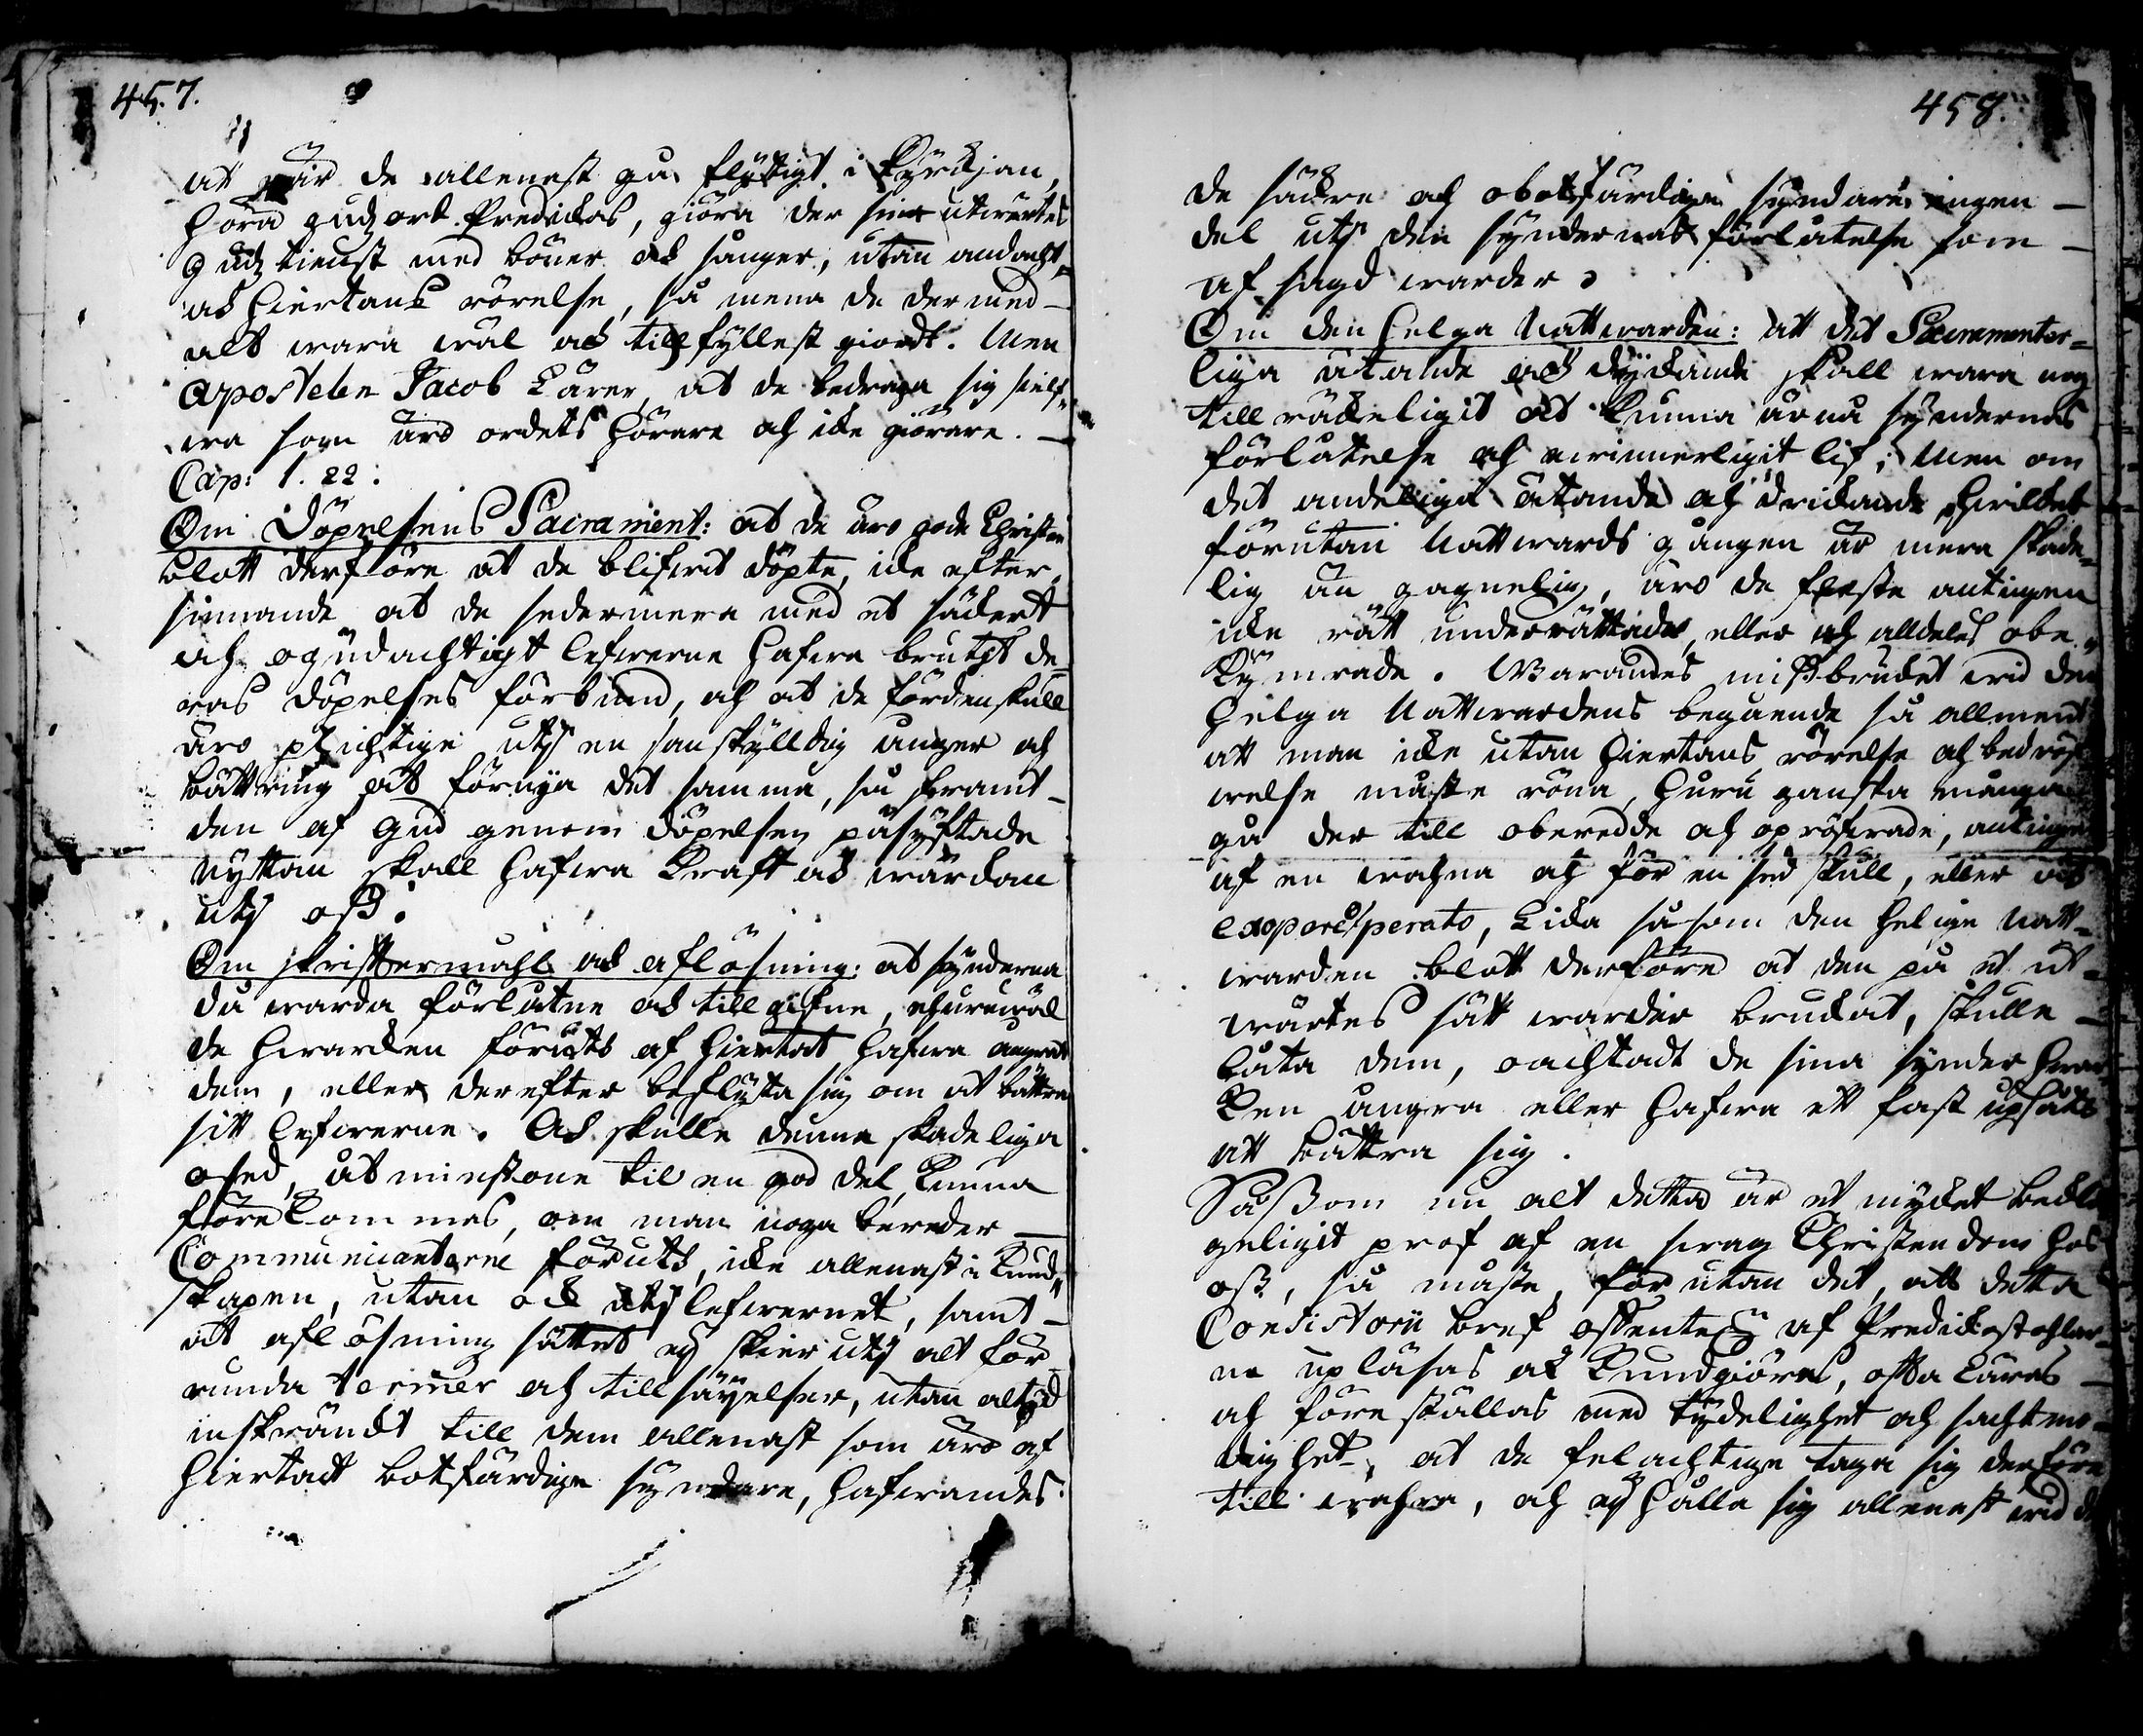 457.
at när de allenast gå flijtigt i Kyrckjan,
höra Gudz ord Predickas, giöra der sin utwärtes
Gudz tienst med böner och sånger, utan andacht
och hiertans rörelse, så mena de der med
alt wara wäl och tillfyllest giordt. Men
apostelen Jacob Lärer, at de bedraga sig sielf-
wa som äro ordets hörare och icke giörare.
Cap: 1. 22:
Om Döpelsens Sacrament: at de äro gode Christne
blott derföre at de blifwit döpte, icke efter-
sinnande at de sedermera med et säckert
och ogudachtigt lefwerne hafwa brutit de-
ras döpelses förbund, och at de fördenskull
äro plichtige uti en sanskylldig ånger och
bättring at förnya det samma, så framt
den af Gud genom döpelsen påsyftade
nyttan skall hafwa Kraft och wärdan
uti oss.
Om skrifftermahl och aflösning: at synderna
då warda förlåtne och till gifne, ehuruwäl
de hwarcken förut af hiertat hafwa ångrat
dem, eller derefter beflijta sig om at bättra
sitt lefwerne. Och skulle denna skadeliga
osed, åt minstone til en god del, Kunna
förekommas, om man noga bereder
Communicanterne föruth, icke allenast i Kund-
skapen, utan ock uti lefwernet, samt
at aflösning sättet ej skier uti alt för
runda termer och tillsäyelser, utan altid
inskränckt till dem allenast som äro af
hiertat botfärdige syndare, hafwandes
458.
de säckre och obotfärdige syndare ingen
del uti den syndernas förlåtelse som
af sagd warder.
Om den helga Nattwarden: att det Sacramenter-
liga ätande och drickande skall wara nog
tillräckeligit at Kunna ärnå syndernas
förlåtelse och ewinnerligit lif; Men om
det andeliga ätande och drickande, hwilcket
förutan Nattwards gången är mera skade-
lig än gagnelig, äro de fleste antingen
icke rätt underrättade, eller och alldeles obe-
Kymrade. Warandes missbruket wid den
helga Nattwardens begående så allment
att man icke utan hiertans rörelse och bedröf-
welse måste röna, huru ganska månge
gå der till oberedde och opröfwade, antingen
af en wahna och för en sed skull, eller och
ex opere operato, Lika såsom den helige Natt-
warden blott derföre at den på et ut-
wärtes sätt warder brukat, skulle
båta dem, oachtadt de sina synder hwar-
Ken ångra eller hafwa ett fast upsåt
att bättra sig.
Såssom nu alt detta är et mycket bekla-
geligit prof af en swag Christendom hos
oss, så måste, förutan det, att detta
Consistorii bref offentelig af Predickostohlar-
ne upläsas och Kundgiöras, offta Läras
och föreställas med tydelighet och sachtmo-
dighet, at de felachtige taga sig derföre
till wahra, och ej hålla sig allenast wid de